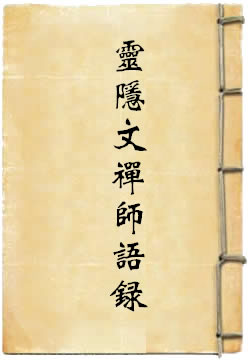 靈隱文禪師語録